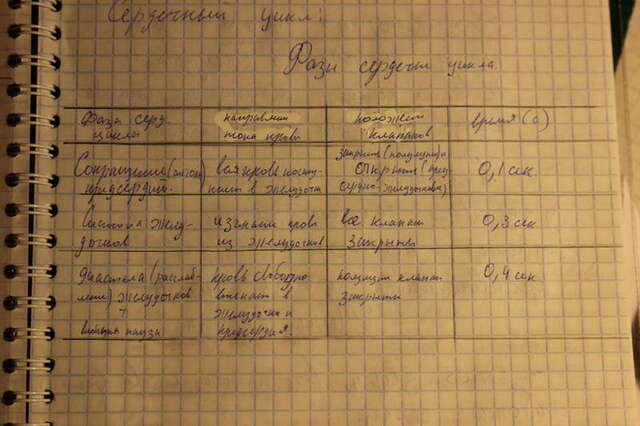 Сердечный цикл:
Фазы сердечн цикла.
Фаза серд. цикла
направлен тока крови
положен клапанов
время (с)
Сокращение (систола) предсердий.
вся кровь поступает в желудочки
закрыты (полулун) открыты (предсердно-желудочковые)
0,1 сек
систола желудочков
из кровь из желудочков
все клапан закрыты
0,3 сек
диастола (расслабление) желудочков +
общая пауза
кровь свободно втекает в желудочки и предсердия.
клапан закрыты
0,4 сек